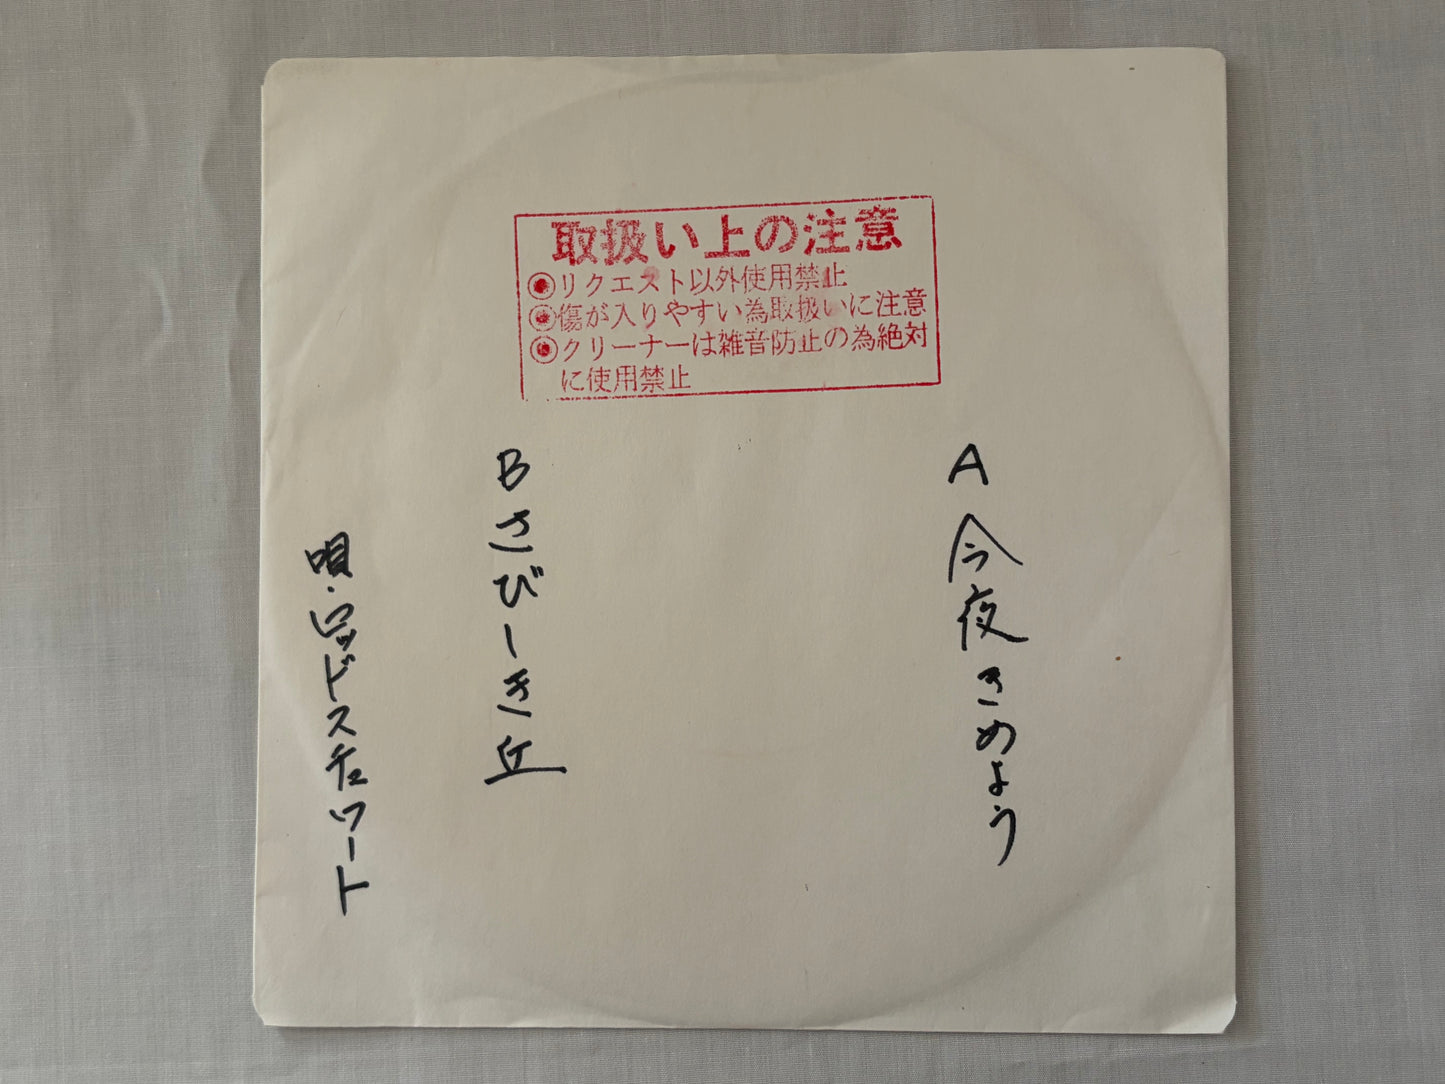 取扱い上の注意
◉リクエスト以外使用禁止
◉傷が入りやすい為取扱いに注意
◉クリーナーは雑音防止の為絶対
に使用禁止
A 今夜きめよう
B さびーき丘
唄・ロッドスチュワート